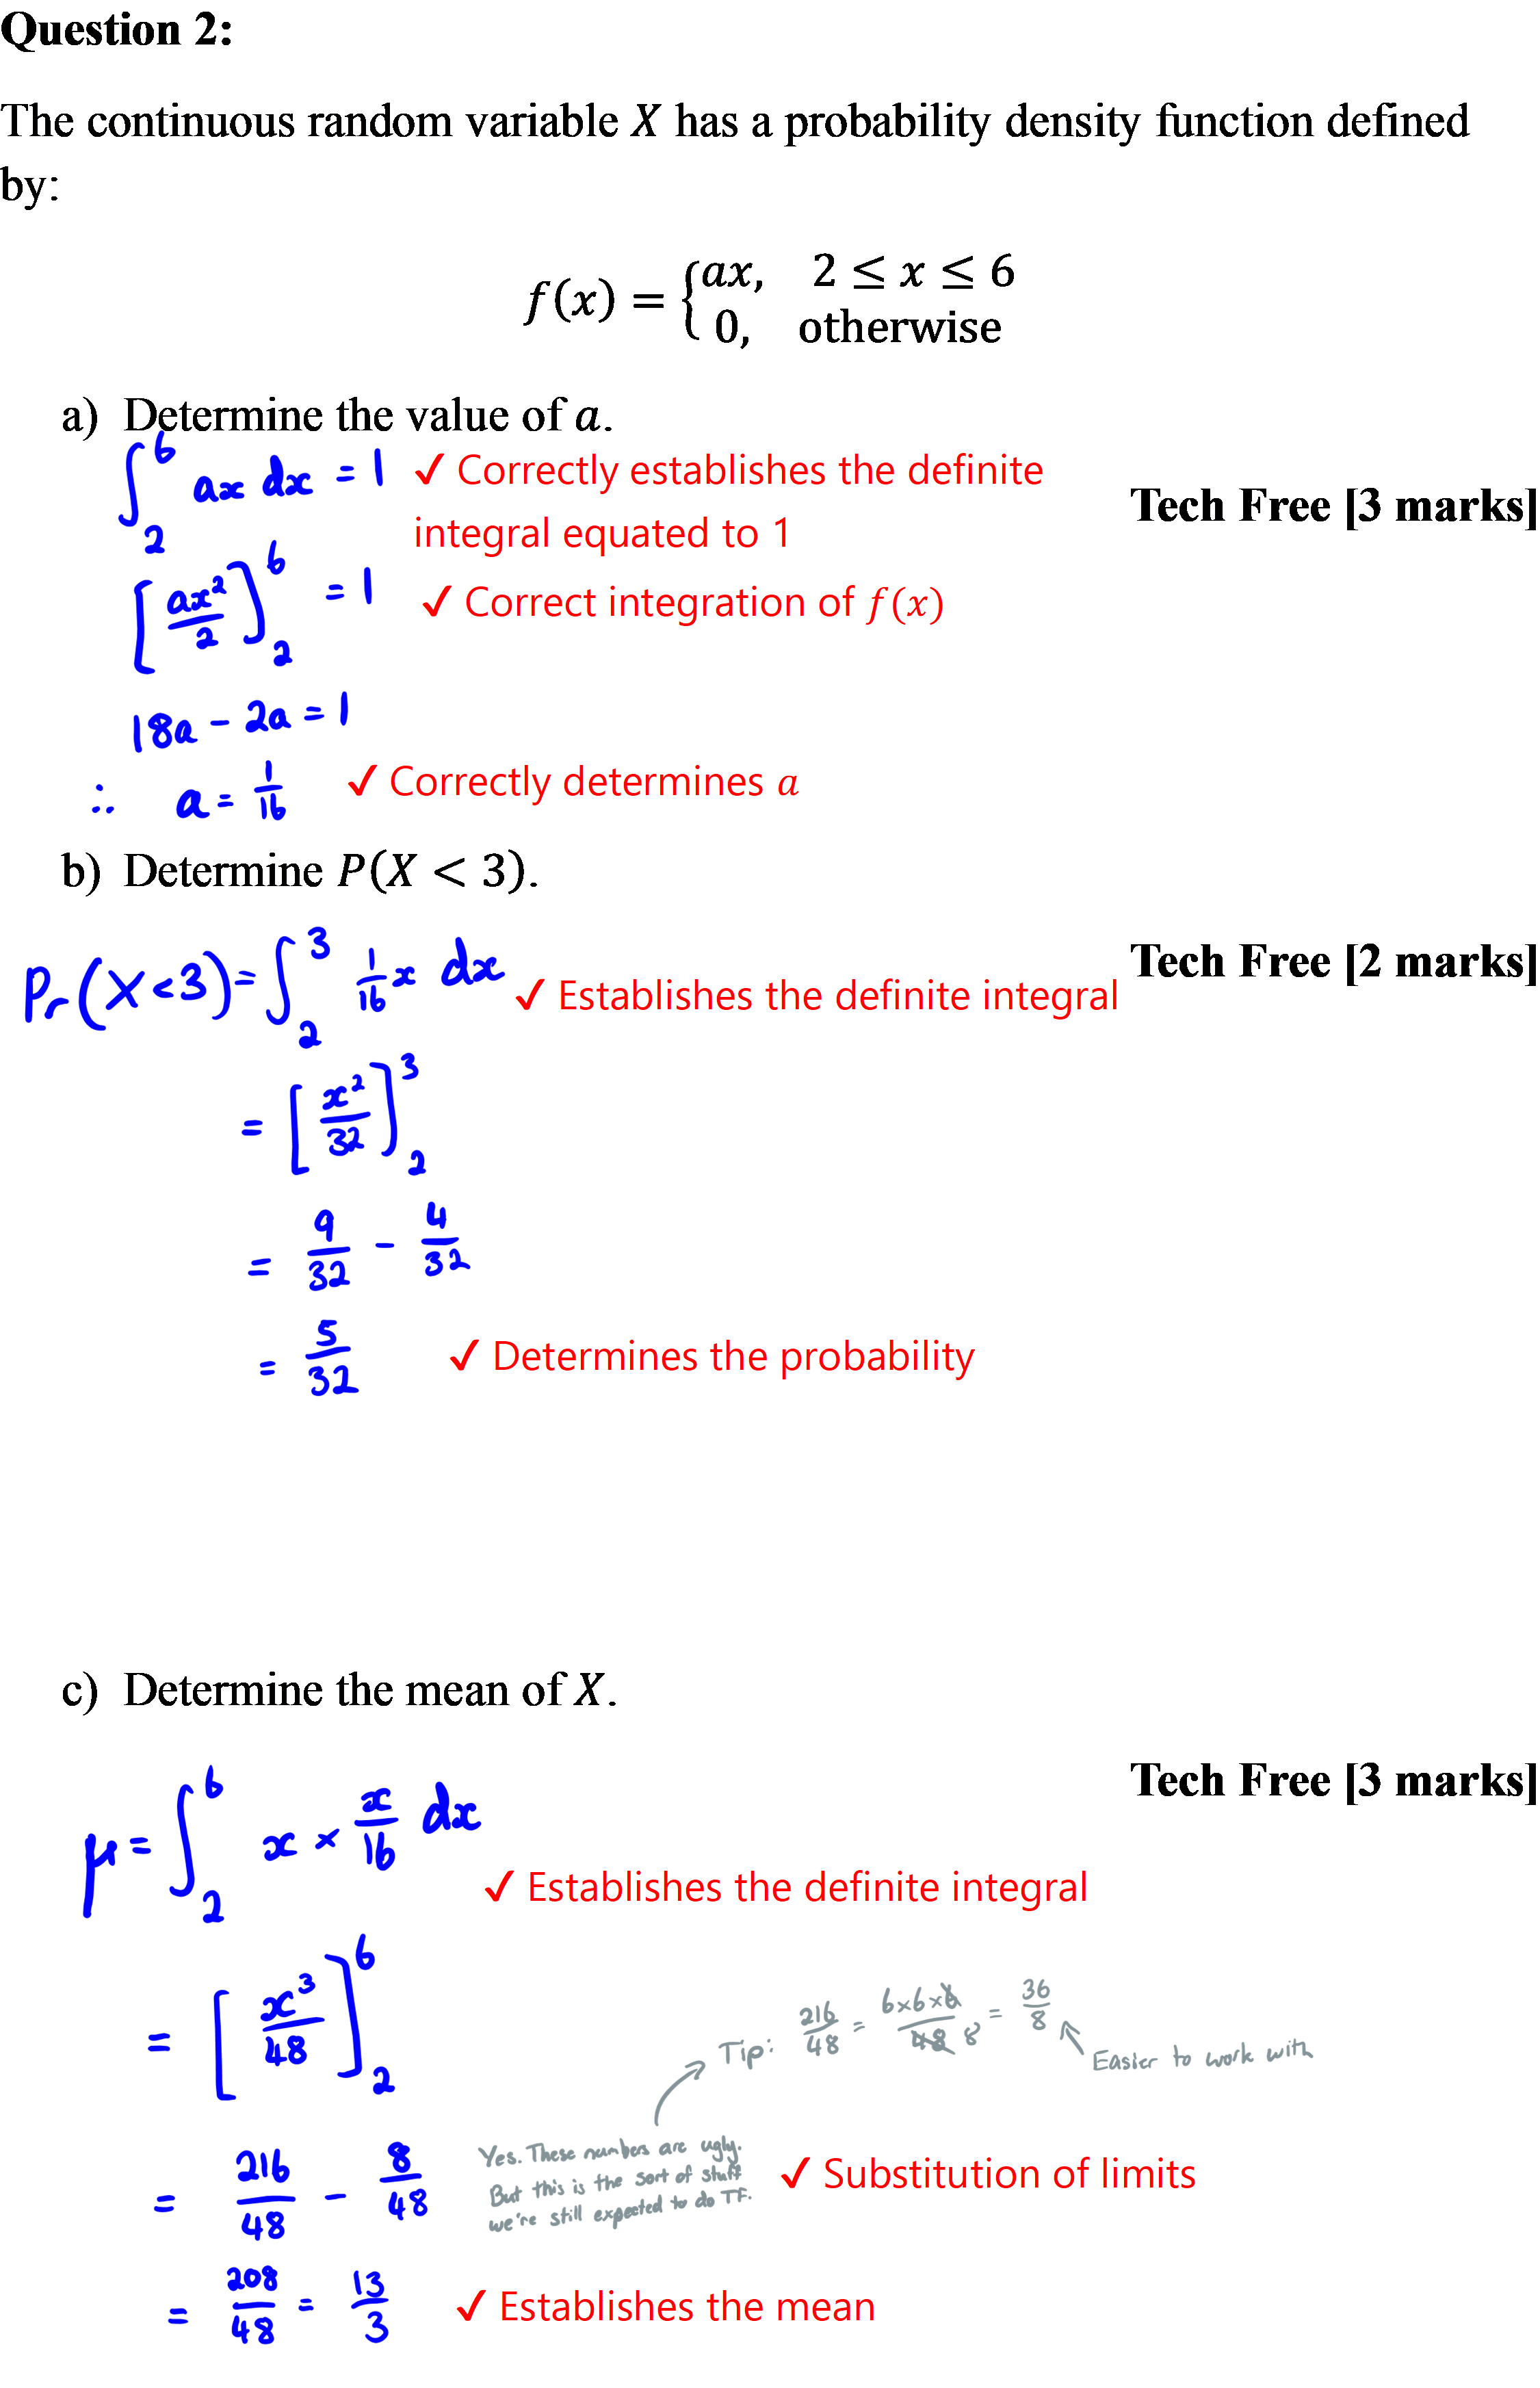 Question 2:
The continuous random variable X has a probability density function defined
by:
f(x) = { ax, 2 ≤ x ≤ 6
0, otherwise
a) Determine the value of a.
∫₂⁶ ax dx = 1 ✓ Correctly establishes the definite
integral equated to 1
Tech Free [3 marks]
[ax²/2]₂⁶ = 1 ✓ Correct integration of f(x)
18a - 2a = 1
∴ a = 1/16 ✓ Correctly determines a
b) Determine P(X < 3).
Tech Free [2 marks]
Pr(X<3) = ∫₂³ 1/16 x dx ✓ Establishes the definite integral
= [x²/32]₂³
= 9/32 - 4/32
= 5/32 ✓ Determines the probability
c) Determine the mean of X.
Tech Free [3 marks]
μ = ∫₂⁶ x × x/16 dx
✓ Establishes the definite integral
= [x³/48]₂⁶
Tip: 216/48 = 6×6×6/48 8 = 36/8
Easier to work with
= 216/48 - 8/48
Yes. These numbers are ugly.
But this is the sort of stuff
we're still expected to do TF.
✓ Substitution of limits
= 208/48 = 13/3 ✓ Establishes the mean